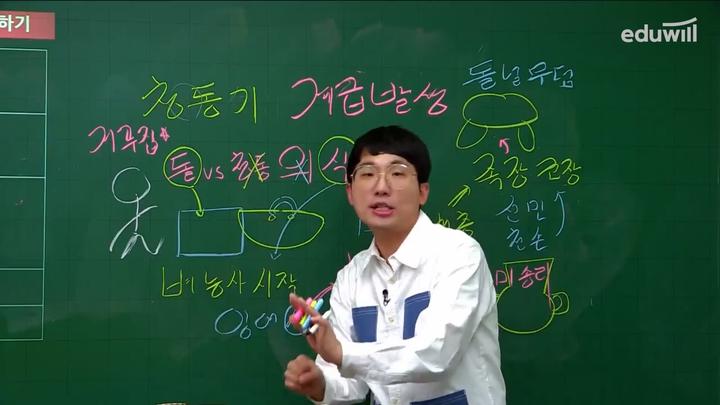 하기
eduwill
청동기 계급발생
돌널무덤
거푸집*
돌 vs 청동 의 식
족장 권장
선민
천손
벼농사 시작
미송리
잉여